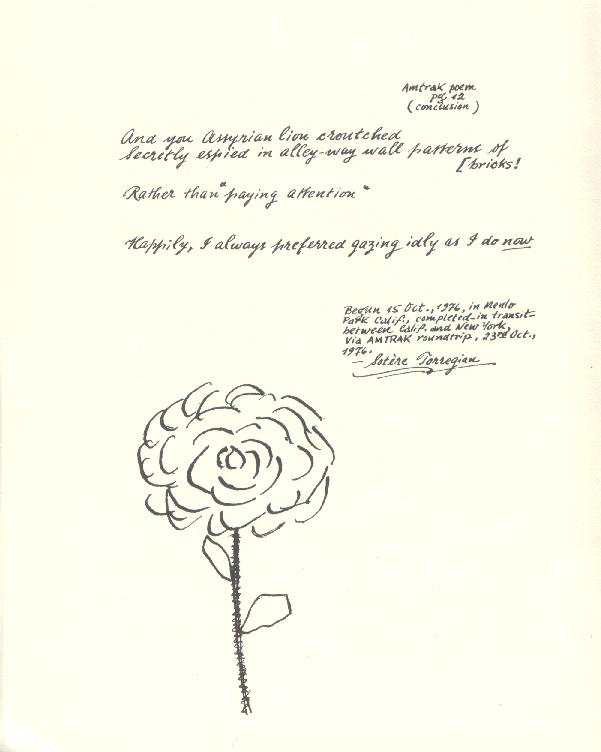 Amtrak poem
pg. 12
(conclusion)
And you Assyrian lion croutched
Secretly espied in alley-way wall patterns of
[bricks!
Rather than "paying attention"
Happily, I always preferred gazing idly as I do now
Begun 15 Oct., 1976, in Menlo
Park Calif., completed in transit
between Calif. and New York,
Via AMTRAK roundtrip, 23rd Oct.,
1976.
— Sotère Torregian